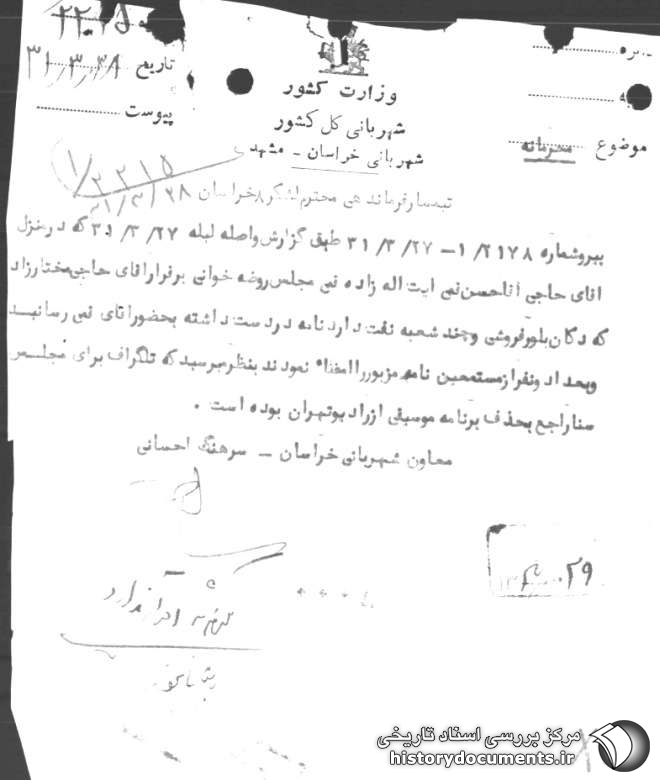 ۲۲۰۲۵
تاریخ ۳۱/۳/۲۸
پیوست
وزارت کشور
شهربانی کل کشور
شهربانی خراسان - مشهد
موضوع محرمانه
۱/۲۲۱۵
تیمسار فرماندهی محترم لشگر ۸ خراسان ۳۱/۳/۲۸
پیرو شماره ۱/۲۱۷۸ – ۳۱/۳/۲۷ طبق گزارش واصله لیله ۳۱/۳/۲۷ که در منزل
اقای حاجی اقا حسن نمی ایت اله زاده نمی مجلس روضه خوانی برقرار اقای حاجی مختارزاد
که دکان بلور فروشی و چند شعبه نفت دارد نامه در دست داشته بحضور اقای نمی رسانید
و بعد او نفر از مستمعین نامه مزبور را امضاء نمودند بنظر میرسید که تلگراف برای مجلس
سنا راجع بحذف برنامه موسیقی از رادیو تهران بوده است .
معاون شهربانی خراسان – سرهنگ احسانی
۲۹
مرکز بررسی اسناد تاریخی
historydocuments.ir